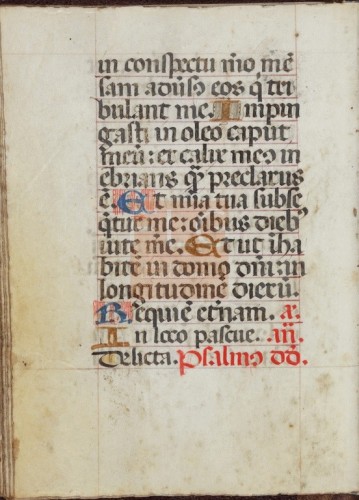 in conspectu m̄o mē
sam adūsꝰ eos q̄ tri
bulant me. Impin
gasti in oleo caput
meū: et calix meꝰ in
ebrians q̄ȝ preclarus
ē. Et mīa tua subse
q̄tur me: oībus dieb᷒
uite mē. Et ut īha
bitē in domo dn̄i: in
longitudinē dierū.
Requiē et̄nam. a.
In loco pascue. añ.
Delicta. Psalmꝰ dd̄.